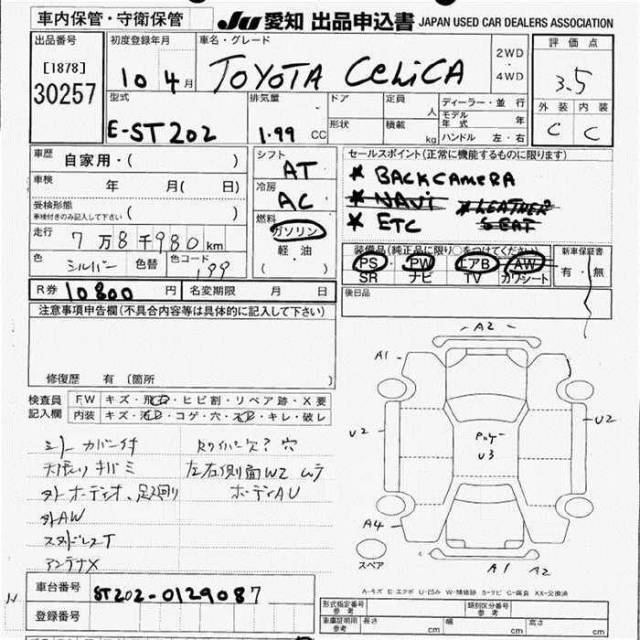 車内保管・守衛保管
JU 愛知 出品申込書 JAPAN USED CAR DEALERS ASSOCIATION
出品番号
[1878]
30257
初度登録年月
10 4 月
車名・グレード
TOYOTA CELICA
2WD
4WD
評価点
3.5
外装 内装
C C
型式
E-ST202
排気量
1.99 CC
ドア
形状
定員 人
積載 kg
ディーラー・並行
モデル年式 年
ハンドル 左・右
車歴 自家用・( )
車検 年 月( 日)
受検形態
車検付きのみ記入して下さい ( )
走行 7万8千980 km
色 シルバー 色替 色コード 199
シフト AT
冷房 AC
燃料 ガソリン
軽油
( )
セールスポイント(正常に機能するものに限ります)
* BACKCAMERA
* NAVI * LEATHER SEAT
* ETC
装備品(純正品に限り○をつけてください)
PS・PW・エアB・AW
SR ナビ TV カワシート
新車保証書
有・無
後日品
R券 10800 円 名変期限 月 日
注意事項申告欄(不具合内容等は具体的に記入して下さい)
修復歴 有 〔箇所 〕
検査員記入欄
FW キズ・飛石・ヒビ割・リペア跡・X要
内装 キズ・汚れ・コゲ・穴・スレ・キレ・破レ
シートカバー付
外オーディオ、足廻り
左右側面W2 ムラ
ボーディAU
外AW
スタッドレスT
アンテナX
A2
A1
U2
U2
U3
A4
A1 A2
スペア
A-キズ E-エクボ U-凹み W-補修跡 S-サビ C-腐食 XX-交換済
車台番号 ST202-0129087
登録番号
型式指定番号 参考
類別区分番号 参考
車庫証明用 参考 長さ cm 幅 cm 高さ cm